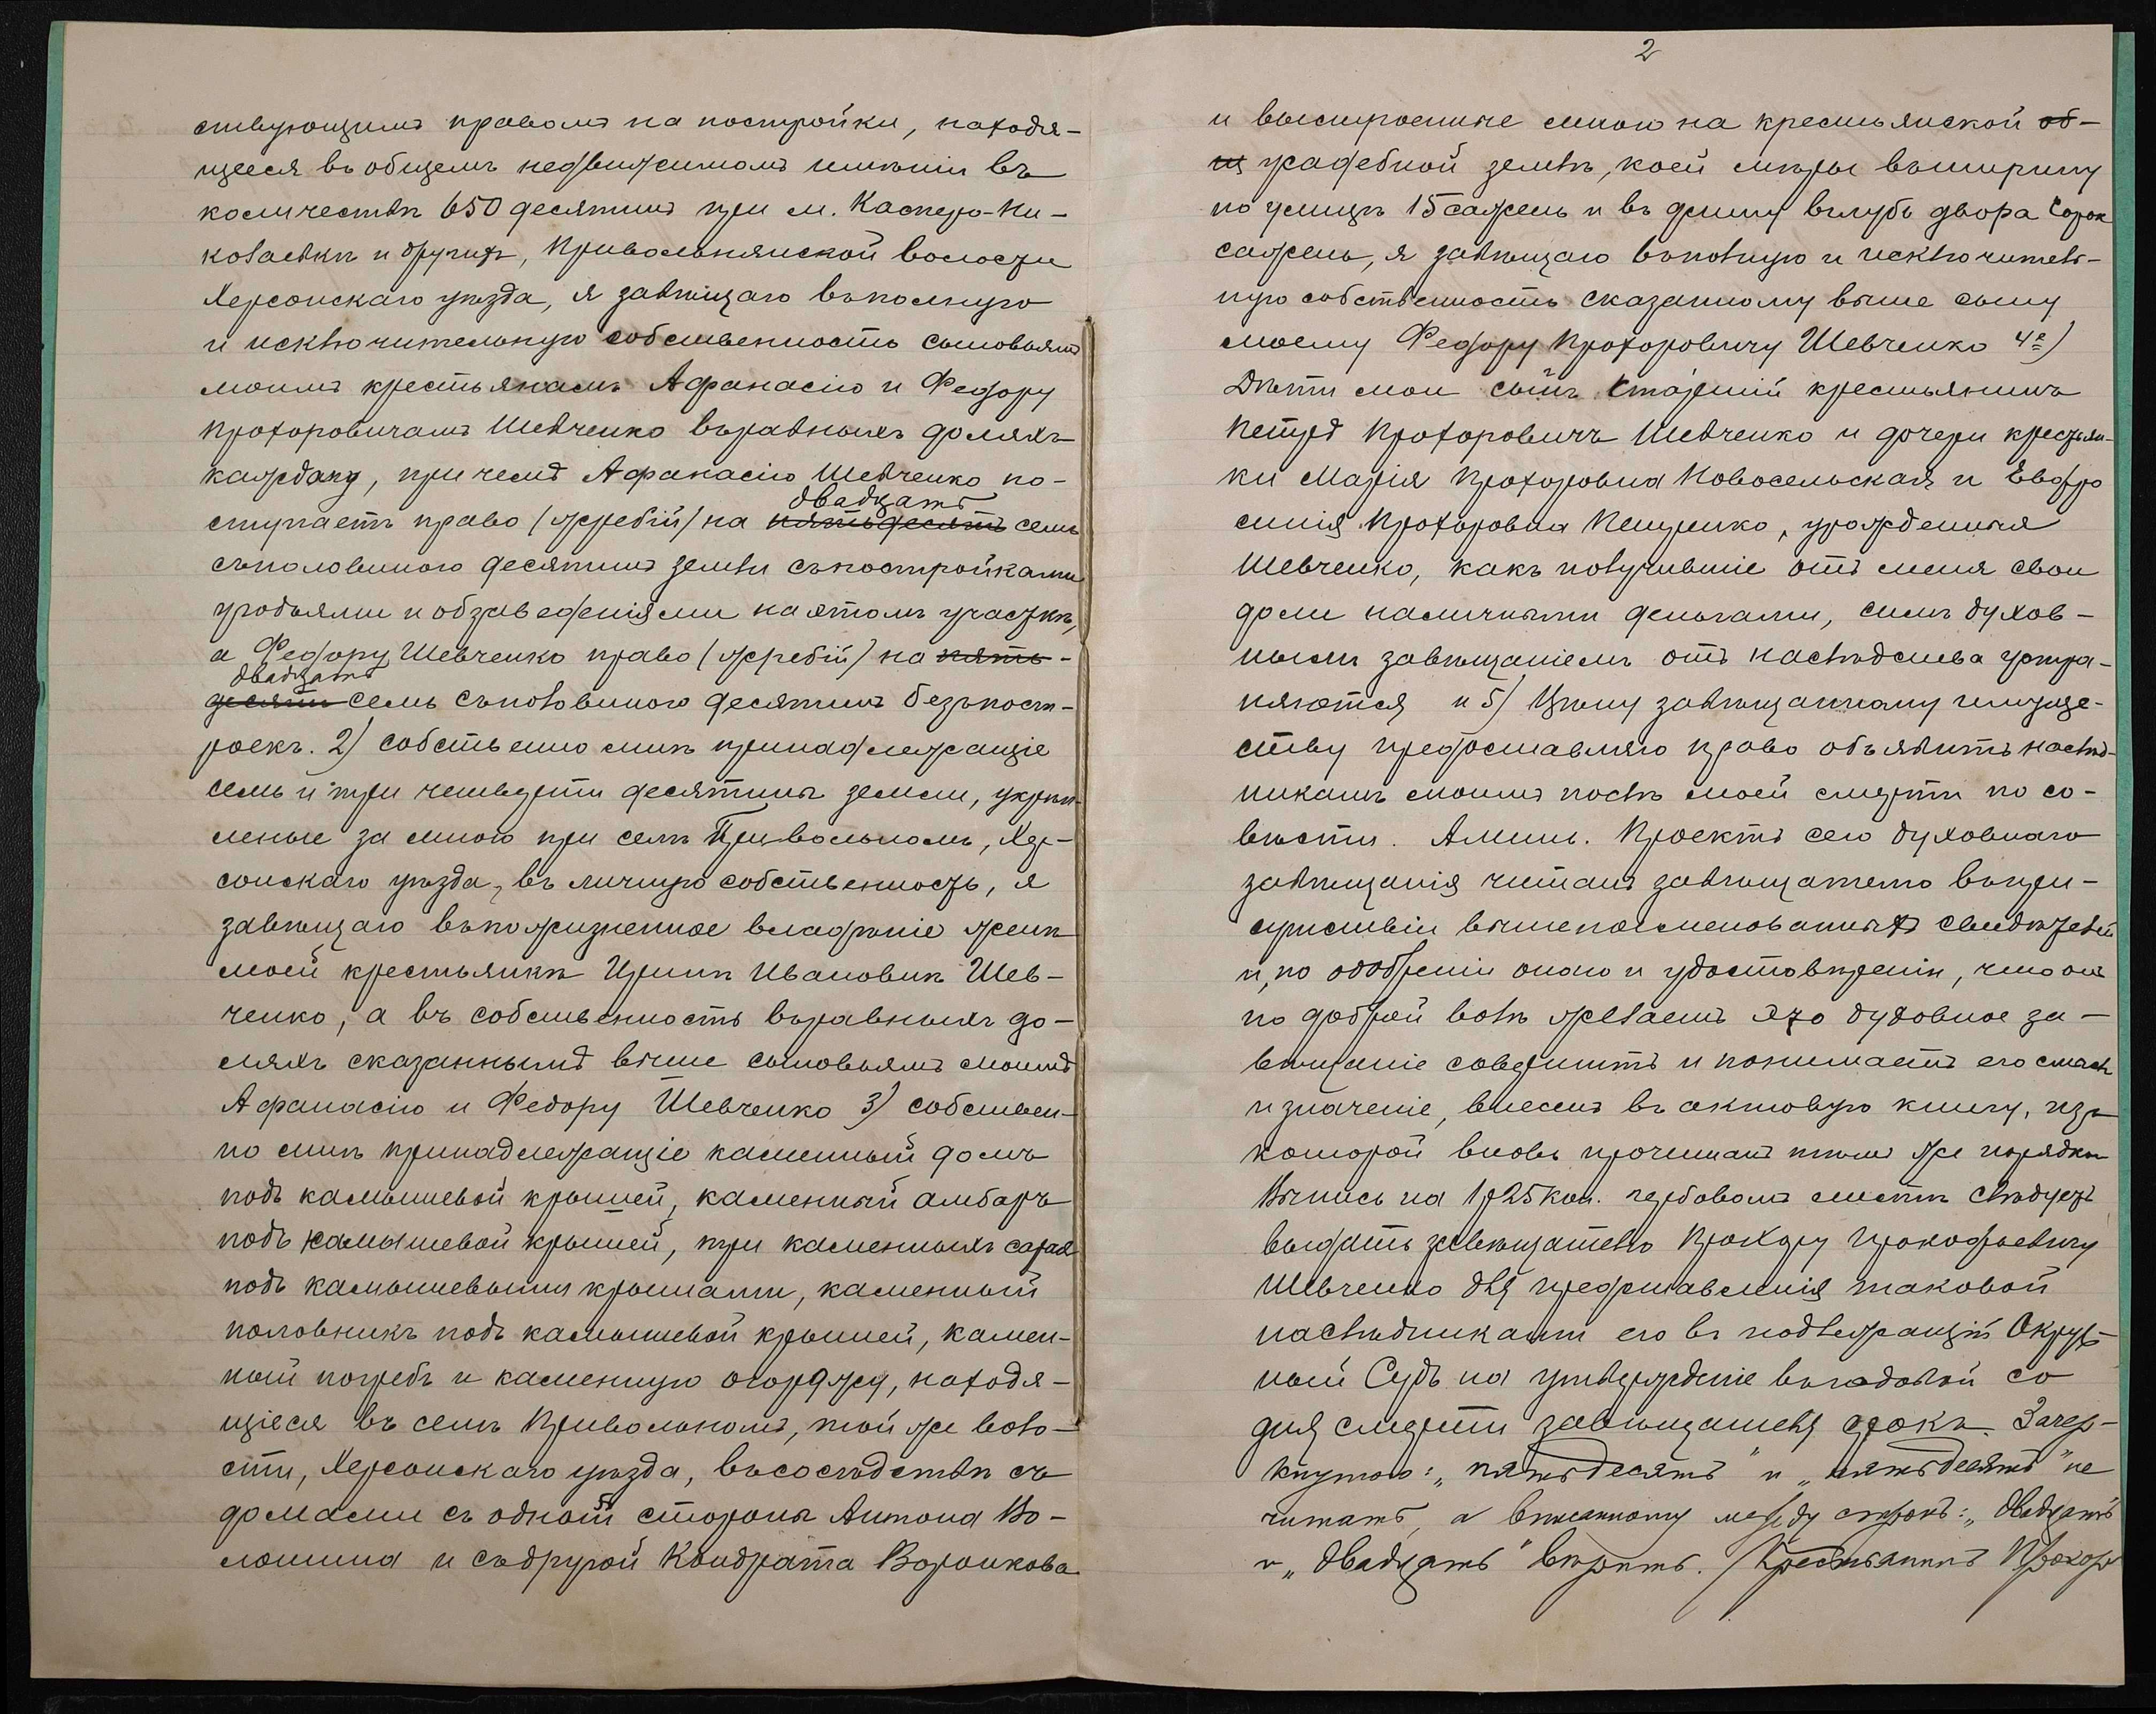 ствующимъ правомъ на постройки, находя-
щееся въ общемъ недвижимомъ имѣніи въ
количествѣ 650 десятинъ при м. Касперо-Ни-
колаевкѣ и другихъ, Привольнянской волости
Херсонскаго уѣзда, я завѣщаю въ полную
и исключительную собственность сыновьямъ
моимъ крестьянамъ Афанасію и Федору
Прохоровичамъ Шевченко въ равныхъ доляхъ
каждому, при чемъ Афанасію Шевченко по-
двадцать
ступаетъ право (жребій) на пятьдесятъ семь
съ половиною десятинъ земли съ постройками
угодьями и обзаведеніями на этомъ участкѣ,
а Федору Шевченко право (жребій) на пять-
двадцать
десятъ семь съ половиною десятинъ безъ пост-
роекъ. 2) собственно мнѣ принадлежащіе
семь и три четверти десятины земли, укрѣп-
леные за мною при селѣ Привольномъ, Хер-
сонскаго уѣзда, въ личную собственность, я
завѣщаю въ пожизненное владѣніе женѣ
моей крестьянкѣ Иринѣ Ивановнѣ Шев-
ченко, а въ собственность въ равныхъ до-
ляхъ сказаннымъ выше сыновьямъ моимъ
Афанасію и Федору Шевченко 3) собствен-
но мнѣ принадлежащіе каменный домъ
подъ камышевой крышей, каменный амбаръ
подъ камышевой крышей, три каменныхъ сарая
подъ камышевыми крышами, каменный
половникъ подъ камышевой крышей, камен-
ный погребъ и каменную огорожу, находя-
щіеся въ селѣ Привольномъ, той же воло-
сти, Херсонскаго уѣзда, въ сосѣдствѣ съ
домами съ одной стороны Антона Во-
лошина и съ другой Кондрата Воронкова
2
и выстроенные мною на крестьянской об-
щ усадебной землѣ, коей мѣры въ ширину
по улицѣ 15 сажень и въ длину вглубь двора сорок
сажень, я завѣщаю въ полную и исключитель-
ную собственность сказанному выше сыну
моему Федору Прохоровичу Шевченко 4е)
Дѣти мои сынъ старшій крестьянинъ
Петръ Прохоровичъ Шевченко и дочери крестьян-
ки Марія Прохоровна Новосельская и Евфро
синія Прохоровна Пещенко, урожденная
Шевченко, какъ получившіе отъ меня свои
доли наличными деньгами, симъ духов-
нымъ завѣщаніемъ отъ наслѣдства устра-
няются и 5) Цѣну завѣщанному имуще-
ству предоставляю право объявить наслѣд-
никамъ моимъ послѣ моей смерти по со-
вѣсти. Аминь. Проектъ сего духовнаго
завѣщанія читанъ завѣщателю въ при-
сутствіи вышепоименованныхъ свидѣтелей
и, по одобреніи онаго и удостовѣреніи, что онъ
по доброй волѣ желаетъ это духовное за-
вѣщаніе совершить и понимаетъ его смыслъ
и значеніе, внесенъ въ актовую книгу, изъ
которой вновь прочитанъ тѣмъ же порядкомъ
Выпись на 1 р 25 коп. гербовомъ листѣ слѣдуетъ
выдать завѣщателю Прохору Прокофьевичу
Шевченко для представленія таковой
наслѣдниками его въ подлежащій Окруж-
ный Судъ на утвержденіе въ годовой со
дня смерти завѣщателя срокъ. Зачер-
кнутое: „пятьдесятъ" и „пятьдесятъ" не
читать, а вписанному между строкъ: „двадцать"
и „двадцать" вѣрить. Крестьянинъ Прохоръ